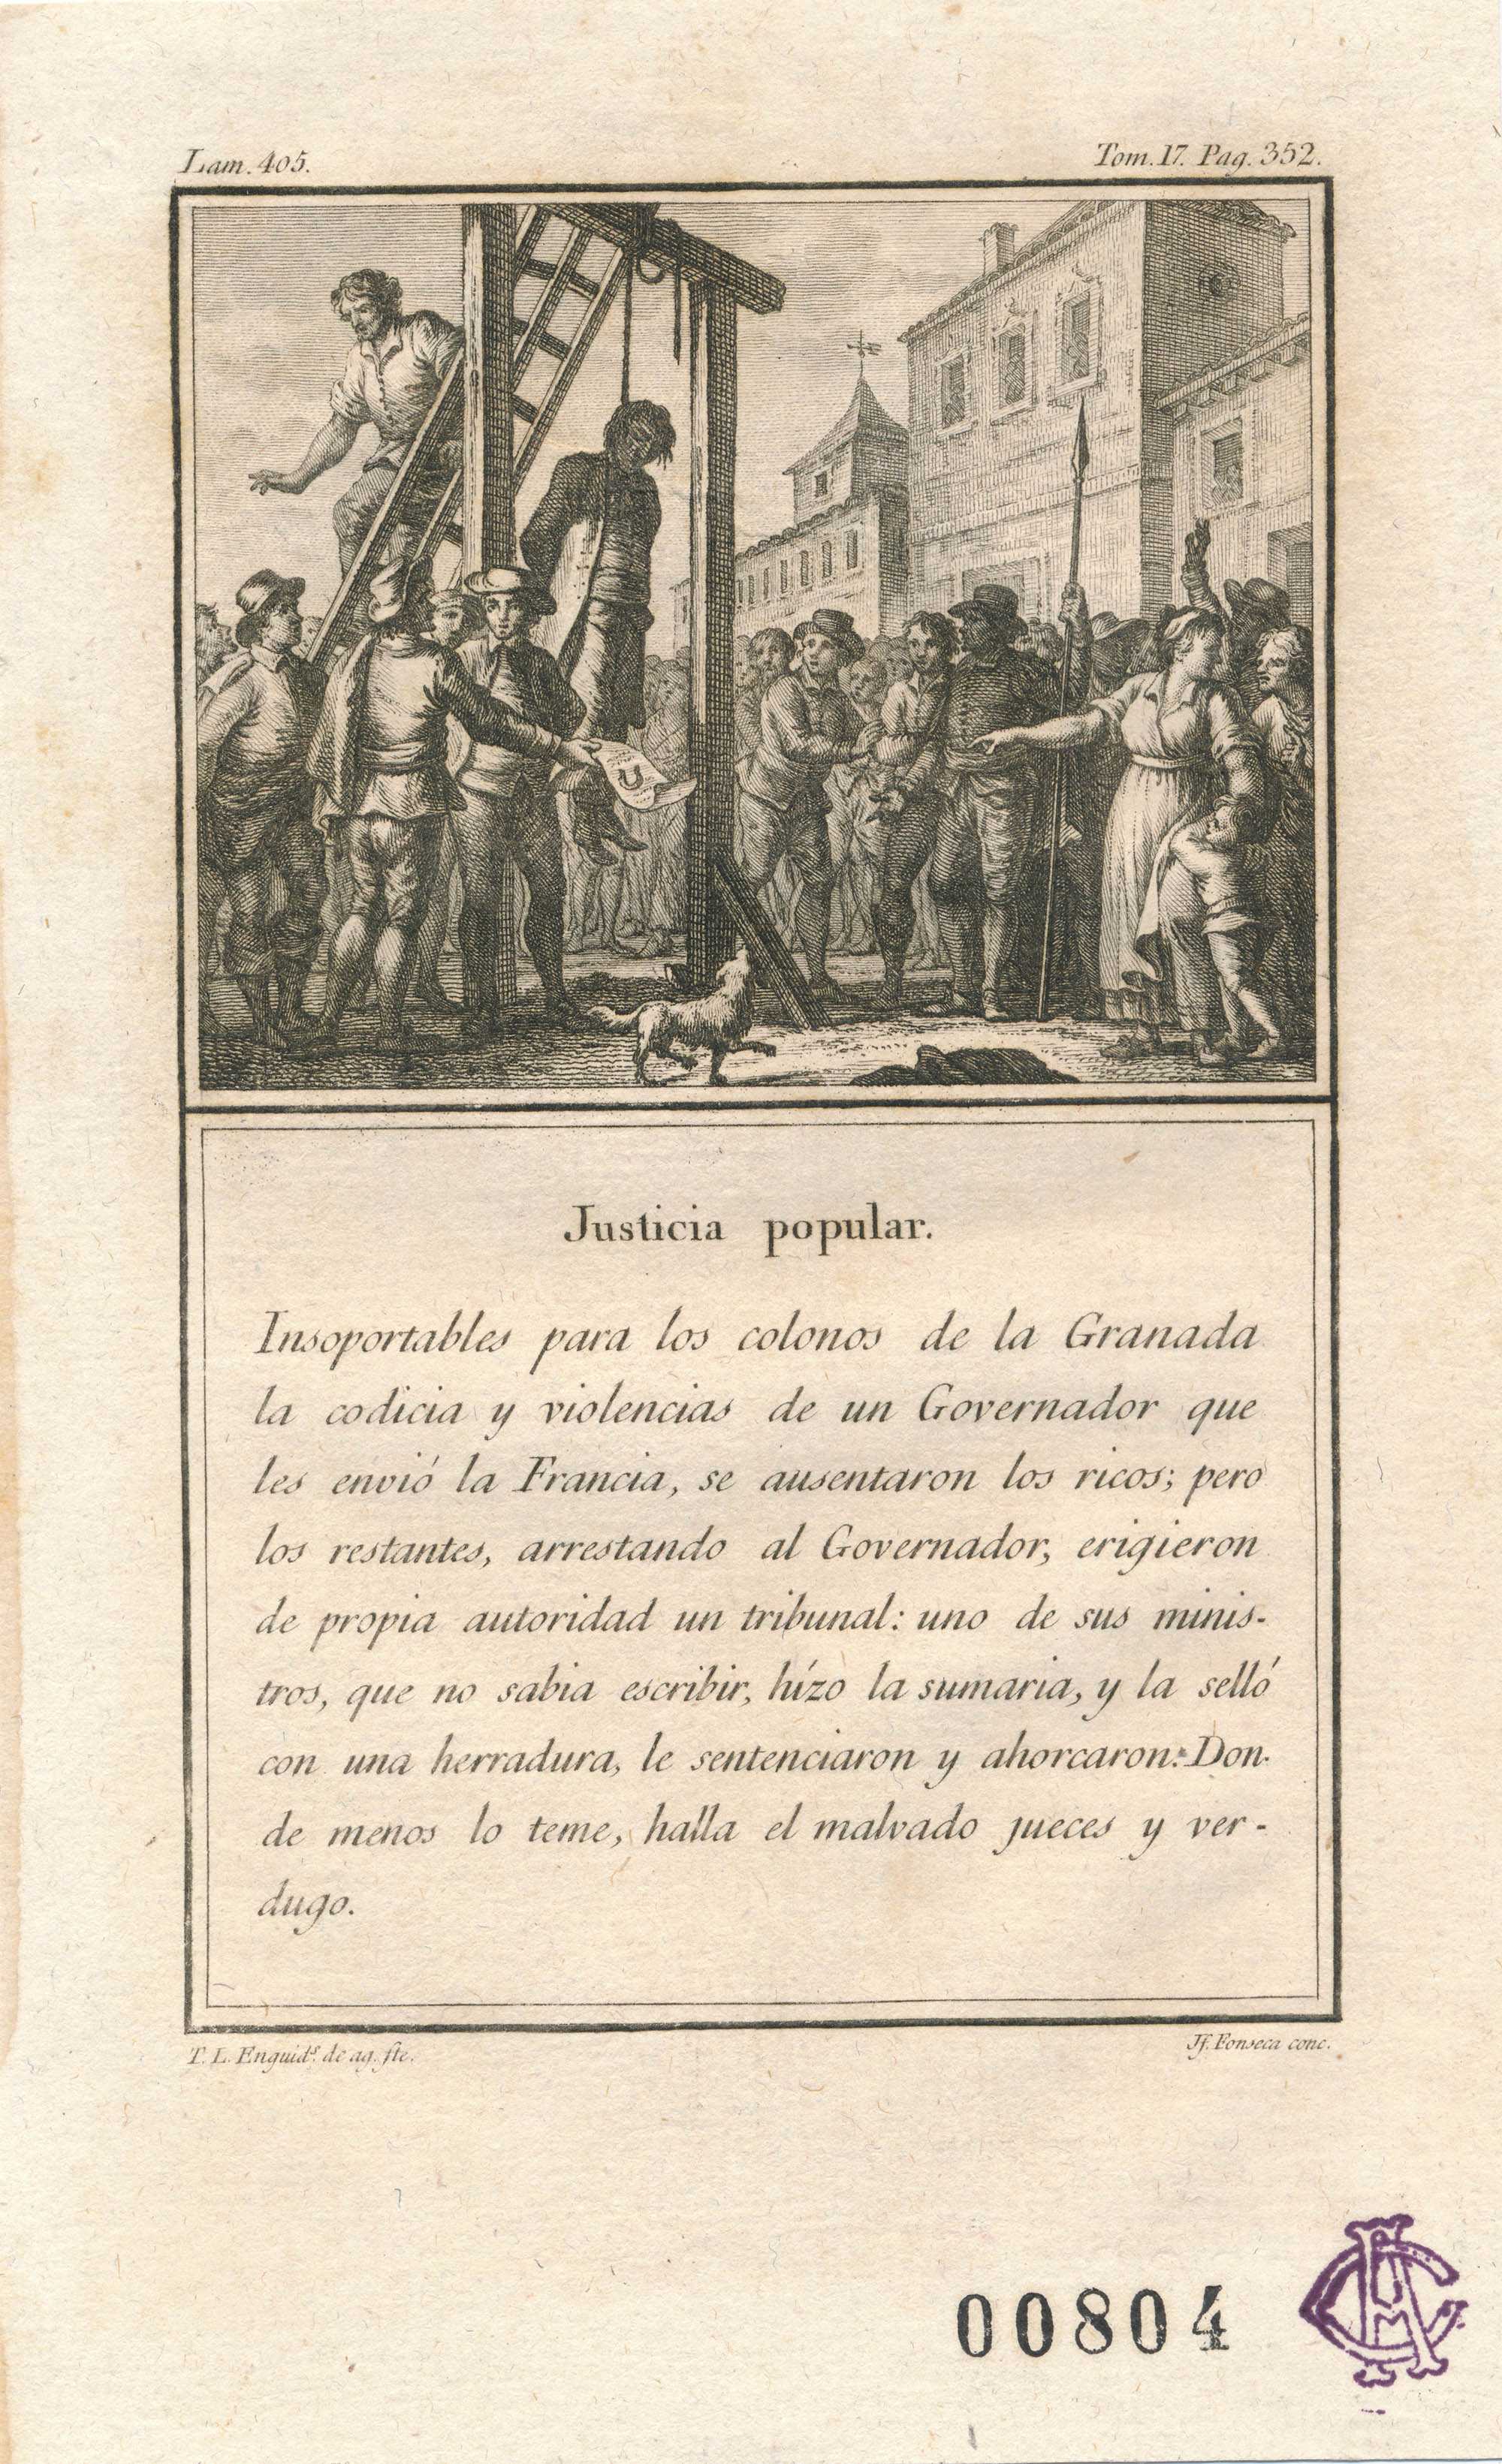 Lam. 405.
Tom. 17. Pag. 352.
Justicia popular.
Insoportables para los colonos de la Granada
la codicia y violencias de un Governador que
les envió la Francia, se ausentaron los ricos; pero
los restantes, arrestando al Governador, erigieron
de propia autoridad un tribunal: uno de sus minis-
tros, que no sabia escribir, hízo la sumaria, y la selló
con una herradura, le sentenciaron y ahorcaron: Don-
de menos lo teme, halla el malvado jueces y ver-
dugo.
T. L. Enguids. de ag. fte.
Jf. Fonseca conc.
00804